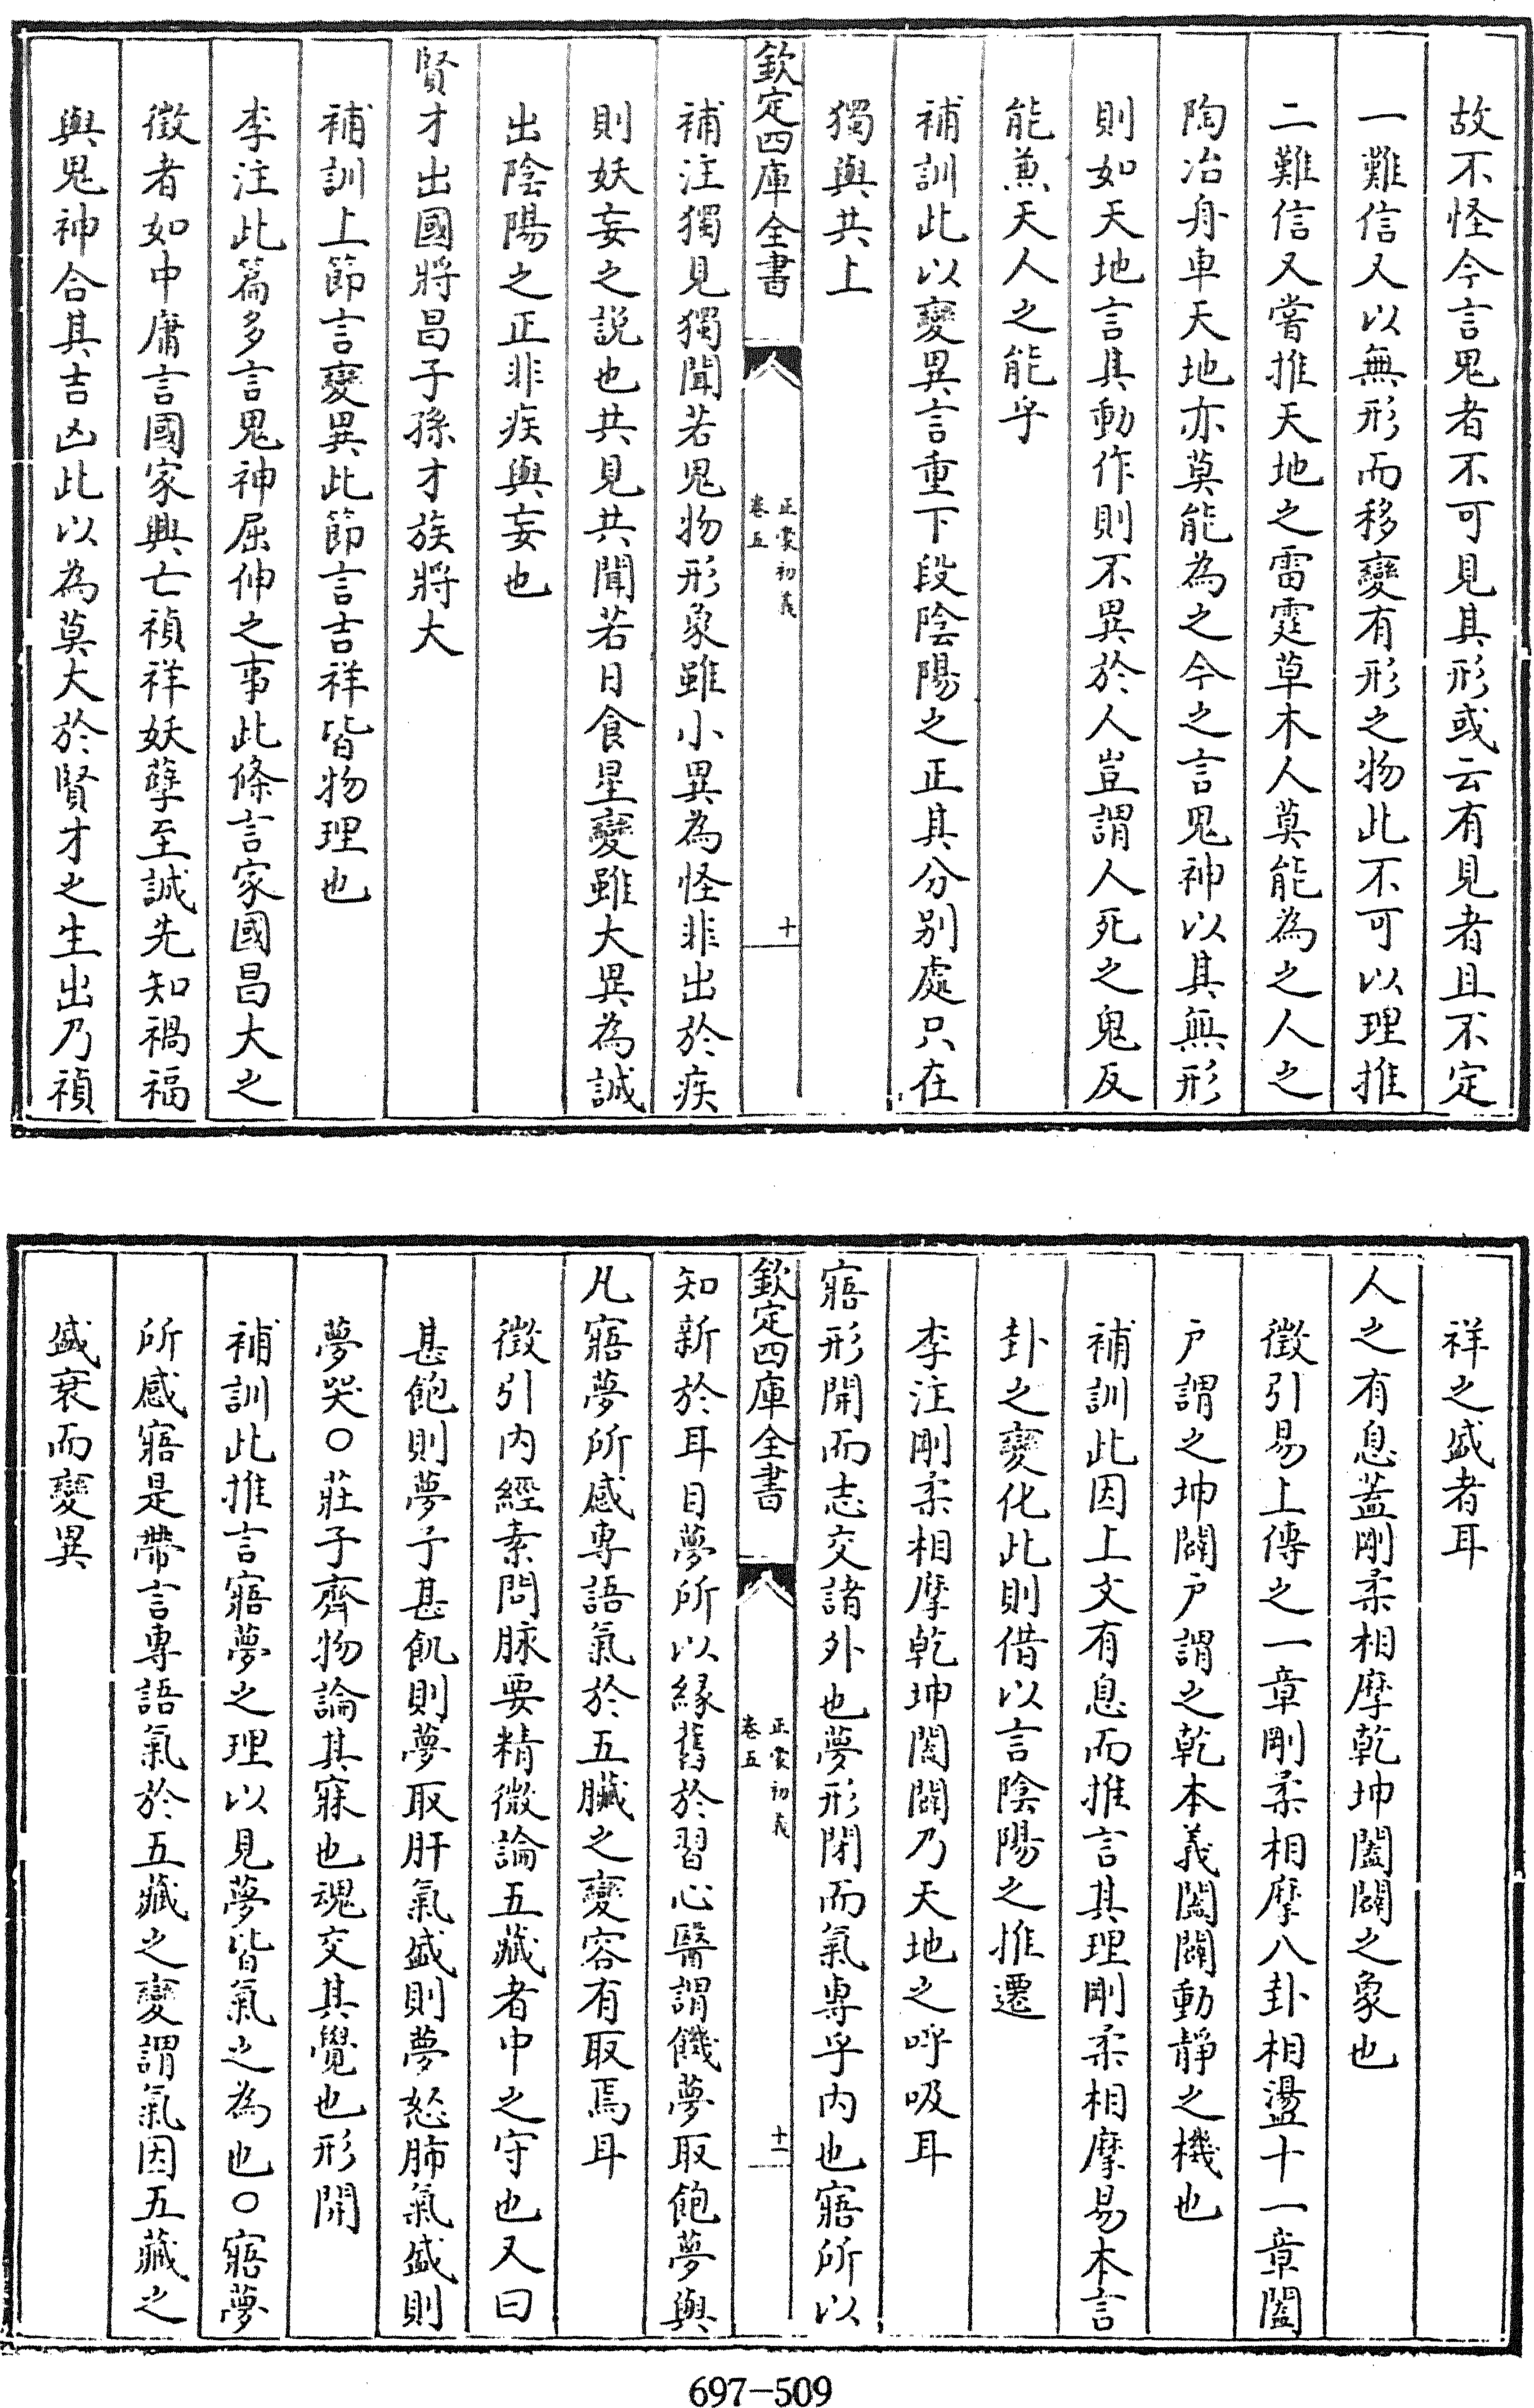 故不怪今言鬼者不可見其形或云有見者且不定
一難信又以無形而移變有形之物此不可以理推
二難信又嘗推天地之雷霆草木人莫能為之人之
陶冶舟車天地亦莫能為之今之言鬼神以其無形
則如天地言其動作則不異於人豈謂人死之鬼反
能兼天人之能乎
補訓此以變異言重下段陰陽之正其分别處只在
獨與共上
欽定四庫全書
正蒙初義
卷五
十
補注獨見獨聞若鬼物形象雖小異為怪非出於疾
則妖妄之説也共見共聞若日食星變雖大異為誠
出陰陽之正非疾與妄也
賢才出國將昌子孫才族將大
補訓上節言變異此節言吉祥皆物理也
李注此篇多言鬼神屈伸之事此條言家國昌大之
徴者如中庸言國家興亡禎祥妖孽至誠先知禍福
與鬼神合其吉凶此以為莫大於賢才之生出乃禎
祥之盛者耳
人之有息蓋剛柔相摩乾坤闔闢之象也
徴引易上傳之一章剛柔相摩八卦相盪十一章闔
户謂之坤闢户謂之乾本義闔闢動靜之機也
補訓此因上文有息而推言其理剛柔相摩易本言
卦之變化此則借以言陰陽之推遷
李注剛柔相摩乾坤闔闢乃天地之呼吸耳
寤形開而志交諸外也夢形閉而氣專乎内也寤所以
欽定四庫全書
正蒙初義
卷五
十一
知新於耳目夢所以縁舊於習心醫謂饑夢取飽夢與
凡寤夢所感專語氣於五臟之變容有取焉耳
徴引内經素問脉要精微論五藏者中之守也又曰
甚飽則夢予甚飢則夢取肝氣盛則夢怒肺氣盛則
夢哭○莊子齊物論其寐也魂交其覺也形開
補訓此推言寤夢之理以見夢皆氣之為也○寤夢
所感寤是帶言專語氣於五藏之變謂氣因五藏之
盛衰而變異
697-509